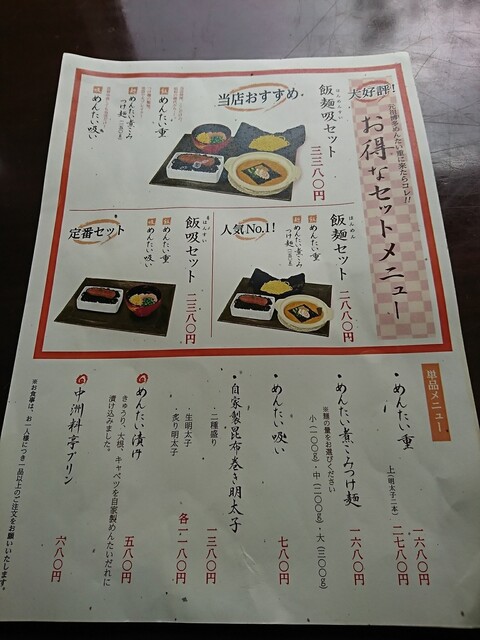 大好評!
元祖博多めんたい重に来たらコレ!!
お得なセットメニュー
当店おすすめ
はんめんすい
飯麺吸セット
三三八〇円
飯 めんたい重
麺 めんたい煮こみ
つけ麺
吸 めんたい吸い
人気No.1!
はんめん
飯麺セット
二八八〇円
飯 めんたい重
麺 めんたい煮こみ
つけ麺
定番セット
はんすい
飯吸セット
二三八〇円
飯 めんたい重
吸 めんたい吸い
単品メニュー
・めんたい重
一六八〇円
上(明太子二本) 二七八〇円
・めんたい煮こみつけ麺
一六八〇円
※麺の量をお選びください
小(一〇〇g)・中(二〇〇g)・大(三〇〇g)
・めんたい吸い
七八〇円
・自家製昆布巻き明太子
・二種盛り 一三八〇円
・生明太子
・炙り明太子
各一一八〇円
めんたい漬け
五八〇円
きゅうり、大根、キャベツを自家製めんたいだれに
漬け込みました。
中洲料亭プリン
六八〇円
※お食事は、お一人様につき一品以上のご注文をお願いいたします。